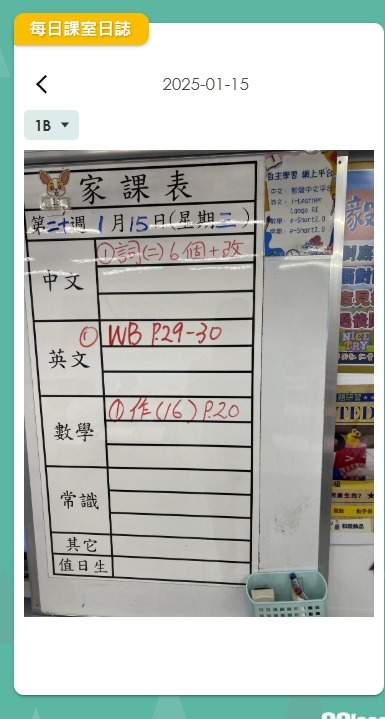 每日課室日誌
2025-01-15
1B
家課表
第二十週 1月15日(星期三)
中文 ①詞(二)6個+改
英文 ① WB P.29-30
數學 ①作(16) P.20
常識
其它
值日生
自主學習 網上平台
i-Learner
Lango AI
e-Smart2.0
e-Smart2.0
NICE
TRY
TED